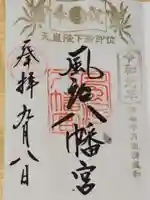 奉祝
天皇陛下御即位
令和元年
風治八幡宮
奉拝 九月八日